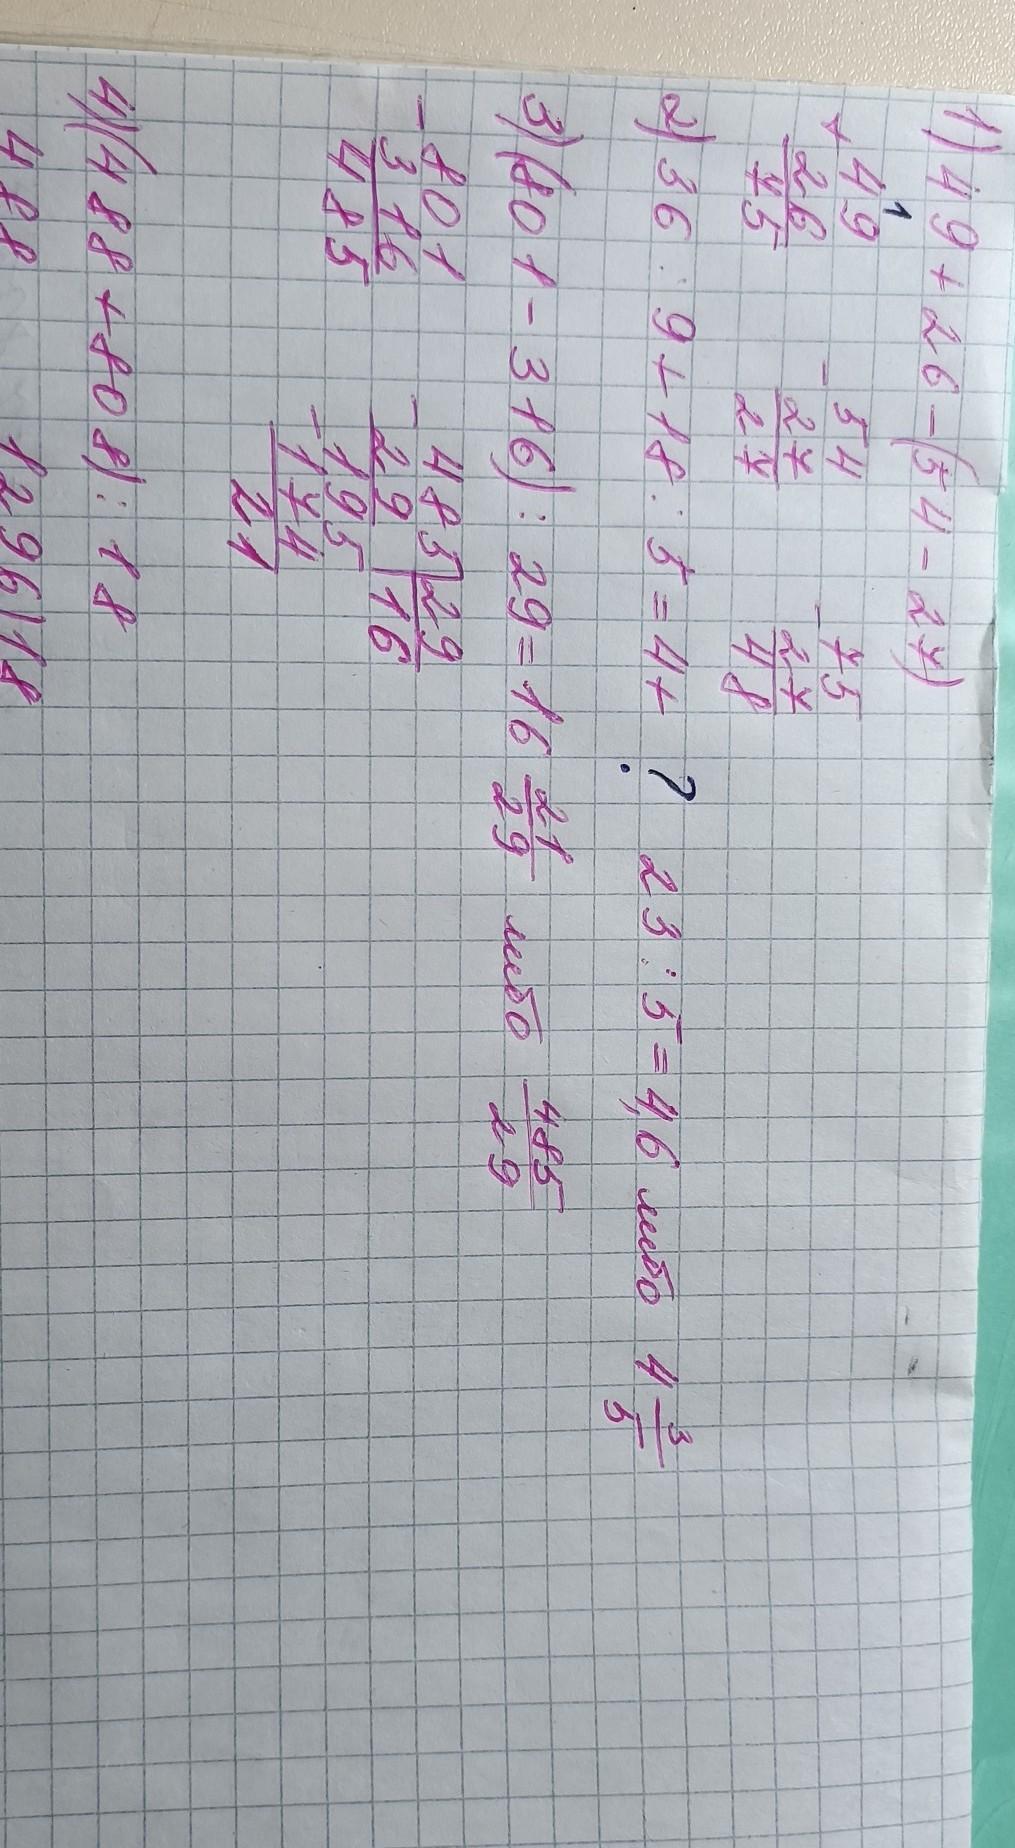 1) 49 + 26 - (54 - 27)
+ 49 - 54 - 75
26 27 27
75 27 48
2) 36 : 9 + 18 : 5 = 4 + ? 23 : 5 = 4,6 либо 4 3/5
3) (801 - 316) : 29 = 16 21/29 либо 485/29
- 801 - 485 | 29
316 29 | 16
485 - 195
174
21
4) (488 + 808) : 18
488 1296 | 18